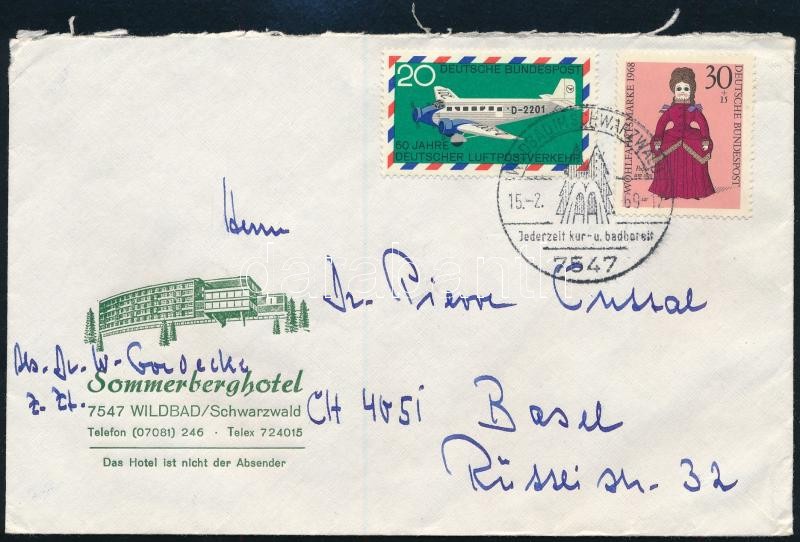 20 DEUTSCHE BUNDESPOST
D-2201
50 JAHRE
DEUTSCHER LUFTPOSTVERKEHR
30 + 15
WOHLFAHRTSMARKE 1968
DEUTSCHE BUNDESPOST
WILDBAD IM SCHWARZWALD
15.-2. 69-17
Jederzeit kur- u. badbereit
7547
Herrn
Dr. Pierre
CH 4051 Basel
32
Abs. Dr. W.
z. Zt.
Sommerberghotel
7547 WILDBAD/Schwarzwald
Telefon (07081) 246 · Telex 724015
Das Hotel ist nicht der Absender